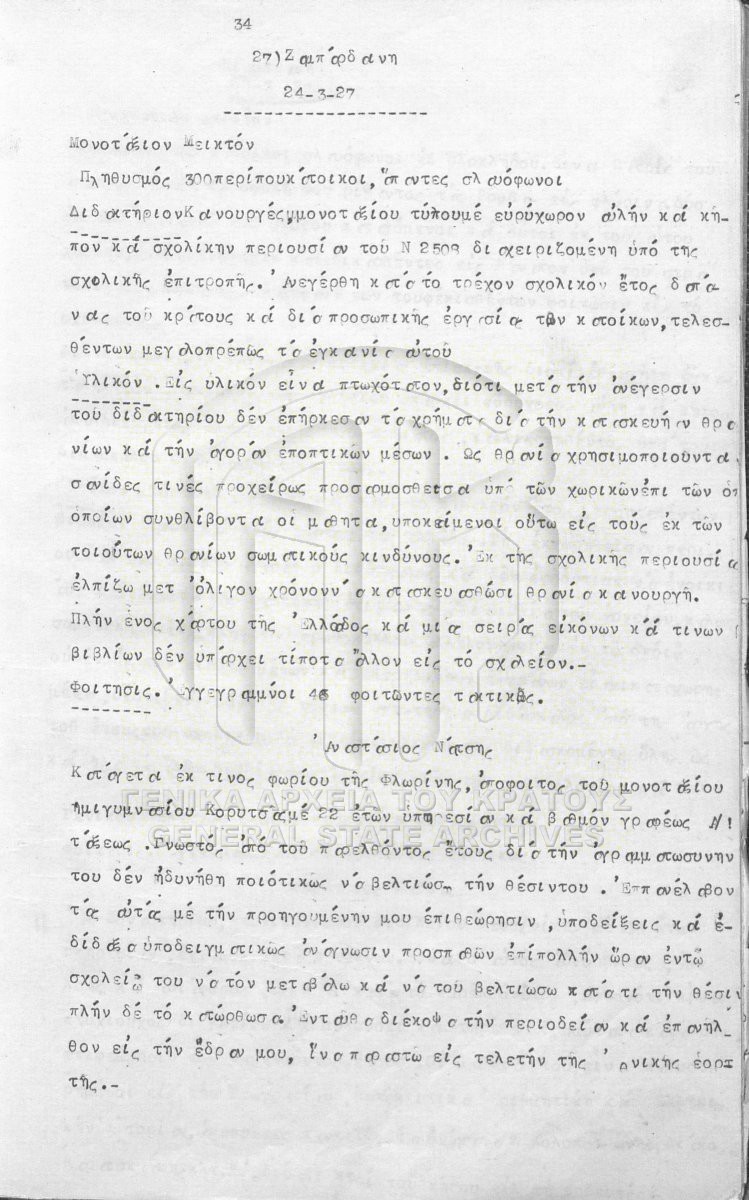 34
27) Ζαμπάρδανη
24-3-27
Μονοτάξιον Μεικτόν
Πληθυσμός 300περίπουκάτοικοι, ἅπαντες σλαυόφωνοι
ΔιδακτήριονΚαινουργές, μονοταξίου τύπουμέ εὐρύχωρον αὐλήν καί κῆ-
πον καί σχολικήν περιουσίαν τοῦ Ν 2508 διαχειριζομένη ὑπό τῆς
σχολικῆς ἐπιτροπῆς. Ἀνεγέρθη κατά τό τρέχον σχολικόν ἔτος δαπά-
ναις τοῦ κράτους καί διά προσωπικῆς ἐργασίας τῶν κατοίκων, τελεσ-
θέντων μεγαλοπρέπῶς τά ἐγκαίνια αὐτοῦ
Ὑλικόν. Εἰς ὑλικόν εἶναι πτωχότατον, διότι μετά τήν ἀνέγερσιν
τοῦ διδακτηρίου δέν ἐπήρκεσαν τά χρήματα διά τήν κατασκευήν θρα
νίων καί τήν ἀγοράν ἐποπτικῶν μέσων. Ὡς θρανία χρησιμοποιοῦνται
σανίδες τινές προχείρως προσαρμοσθεῖσαι ὑπό τῶν χωρικῶνἐπι τῶν ὁπ
ὁποίων συνθλίβονται οἱ μαθηταί, ὑποκείμενοι οὕτω εἰς τούς ἐκ τῶν
τοιούτων θρανίων σωματικούς κινδύνους. Ἐκ τῆς σχολικῆς περιουσίας
ἐλπίζω μετ ὀλίγον χρόνονν ἀ κατασκευασθῶσι θρανία καινουργῆ.
Πλήν ἑνος χάρτου τῆς Ἑλλάδος καί μιᾶς σειρᾶς εἰκόνων καί τινων
βιβλίων δέν ὑπάρχει τίποτα ἄλλον εἰς τό σχολεῖον.-
Φοίτησις. Ἐγγεγραμμένοι 46 φοιτῶντες τακτικῶς.
Ἀναστάσιος Νάτσης
Κατάγεται ἐκ τινος χωρίου τῆς Φλωρίνης, ἀπόφοιτος τοῦ μονοταξίου
ἡμιγυμνασίου Κορυτσᾶς μέ 22 ἐτῶν ὑπηρεσίαν καί βαθμόν γραφέως Α!
τάξεως. Γνωστός ἀπό τοῦ παρελθόντος ἔτους διά τήν ἀγραμματωσυνην
του δέν ἠδυνήθη ποιότικῶς νά βελτιώσῃ τήν θέσιντου. Ἐπανέλαβον
τάς αὐτάς μέ τήν προηγουμένην μου ἐπιθεώρησιν, ὑποδείξεις καί ἐ-
δίδαξα ὑποδειγματικῶς ἀνάγνωσιν προσπαθῶν ἐπίπολλήν ὥραν ἐντῷ
σχολείῳ του νά τόν μεταβάλω καί νά τοῦ βελτιώσω κατά τι τήν θέσιν
πλήν δέ τό κατώρθωσα. Ἐνταῦθα διέκοψα τήν περιοδείαν καί ἐπανῆλ-
θον εἰς τήν ἕδραν μου, ἵνα παραστῶ εἰς τελετήν τῆς ἐθνικῆς ἑορτ
τῆς.-
ΓΕΝΙΚΑ ΑΡΧΕΙΑ ΤΟΥ ΚΡΑΤΟΥΣ
GENERAL STATE ARCHIVES